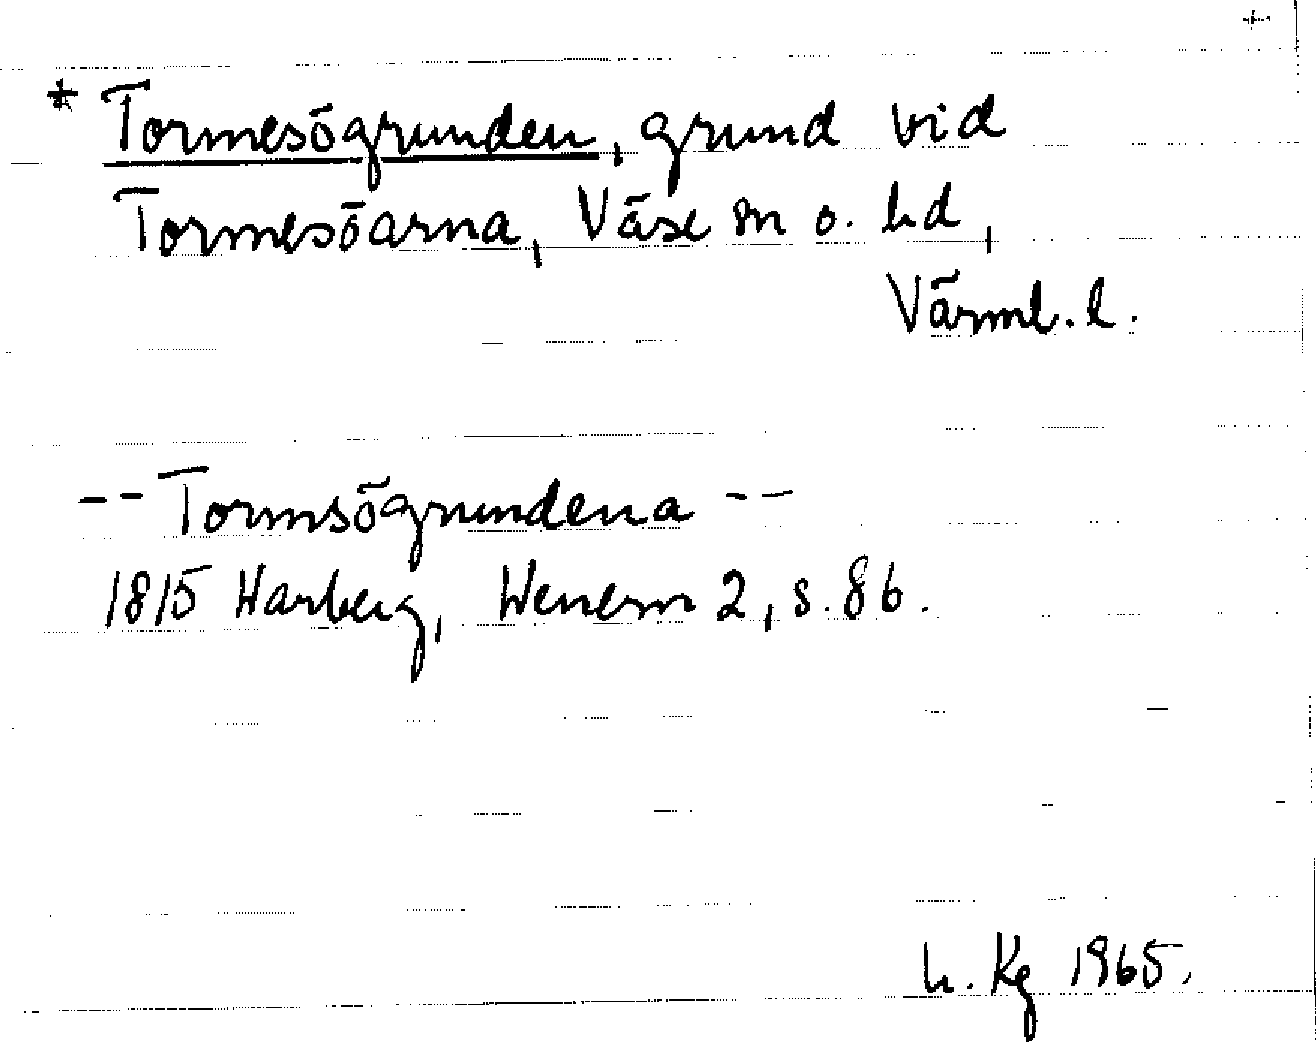 * Tormesögrunden, grund vid
Tormesöarna, Väse sn o. hd,
Värml. l.
-- Tormsögrundena --
1815 Harberg, Wenern 2, s. 86.
h. Kg 1965.